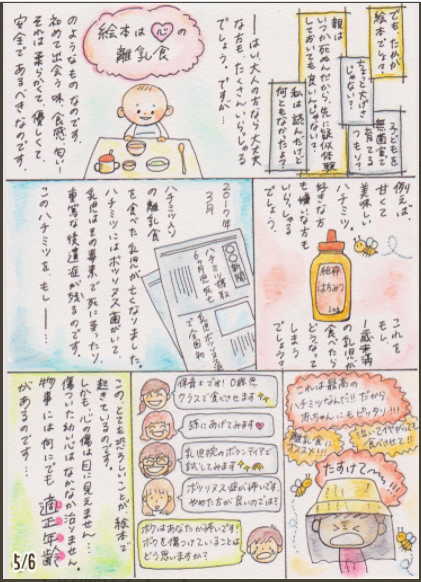 でも、たかが
絵本でしょ？
ちょっと大げさ
じゃない？
子どもを
無菌室で
育てる
つもり？
親は
いつか死ぬんだから、先に疑似体験
しておいても良いんじゃない？
私は読んだけど
何ともなかったよ？
――はい、大人の方なら大丈夫
な方も、たくさんいらっしゃる
でしょう。ですが…
絵本は心の
離乳食
のようなものなのです。
初めて出会う味、食感、匂い
それは柔らかくて、優しくて、
安全であるべきなのです。
例えば、
甘くて
美味しい
ハチミツ。
好きな方
も嫌いな方も
いらっしゃる
でしょう。
純粋
はちみつ
これを
もし、
1歳未満
の乳児が
食べたら
どうなって
しまう
でしょう？
2017年
3月
ハチミツ入り
の離乳食
を食べた乳児が亡くなりました。
ハチミツにはボツリヌス菌がいて、
乳児はその毒素で死に至ったり、
重篤な後遺症が残るのです。
このハチミツを、もし――、
新聞
ハチミツ摂取
6ヶ月児死亡
乳児ボツリヌス症
で全国初
これは最高の
ハチミツなんだ!!だから
赤ちゃんにもピッタリ!!!
離乳食に
オススメ!!!
泣いてイヤがっても
食べさせて!!
たすけて〜〜!!!
保育士です！0歳児
クラスで食べさせます
孫にあげてみます
乳児院のボランティアで
試してみます
ボツリヌス症が怖いです。
やめた方が良いのでは？
ボクはあなたが怖いです！
ボクを傷つけていることは
どう思いますか？
この、とても恐ろしいことが、絵本で
起きているのです。
しかも、心の傷は目に見えません…。
傷ついた幼い心はなかなか治りません。
物事には何にでも適正年齢
があるのです…。
5/6